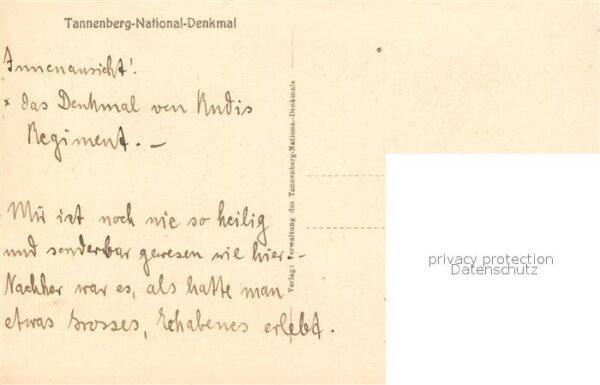 Tannenberg-National-Denkmal
Innenansicht!
× das Denkmal von Rudis
Regiment. —
Mir ist noch nie so heilig
und sonderbar gewesen wie hier –
Nachher war es, als hatte man
etwas Grosses, Erhabenes erlebt.
Verlag: Verwaltung des Tannenberg-National-Denkmals
privacy protection
Datenschutz